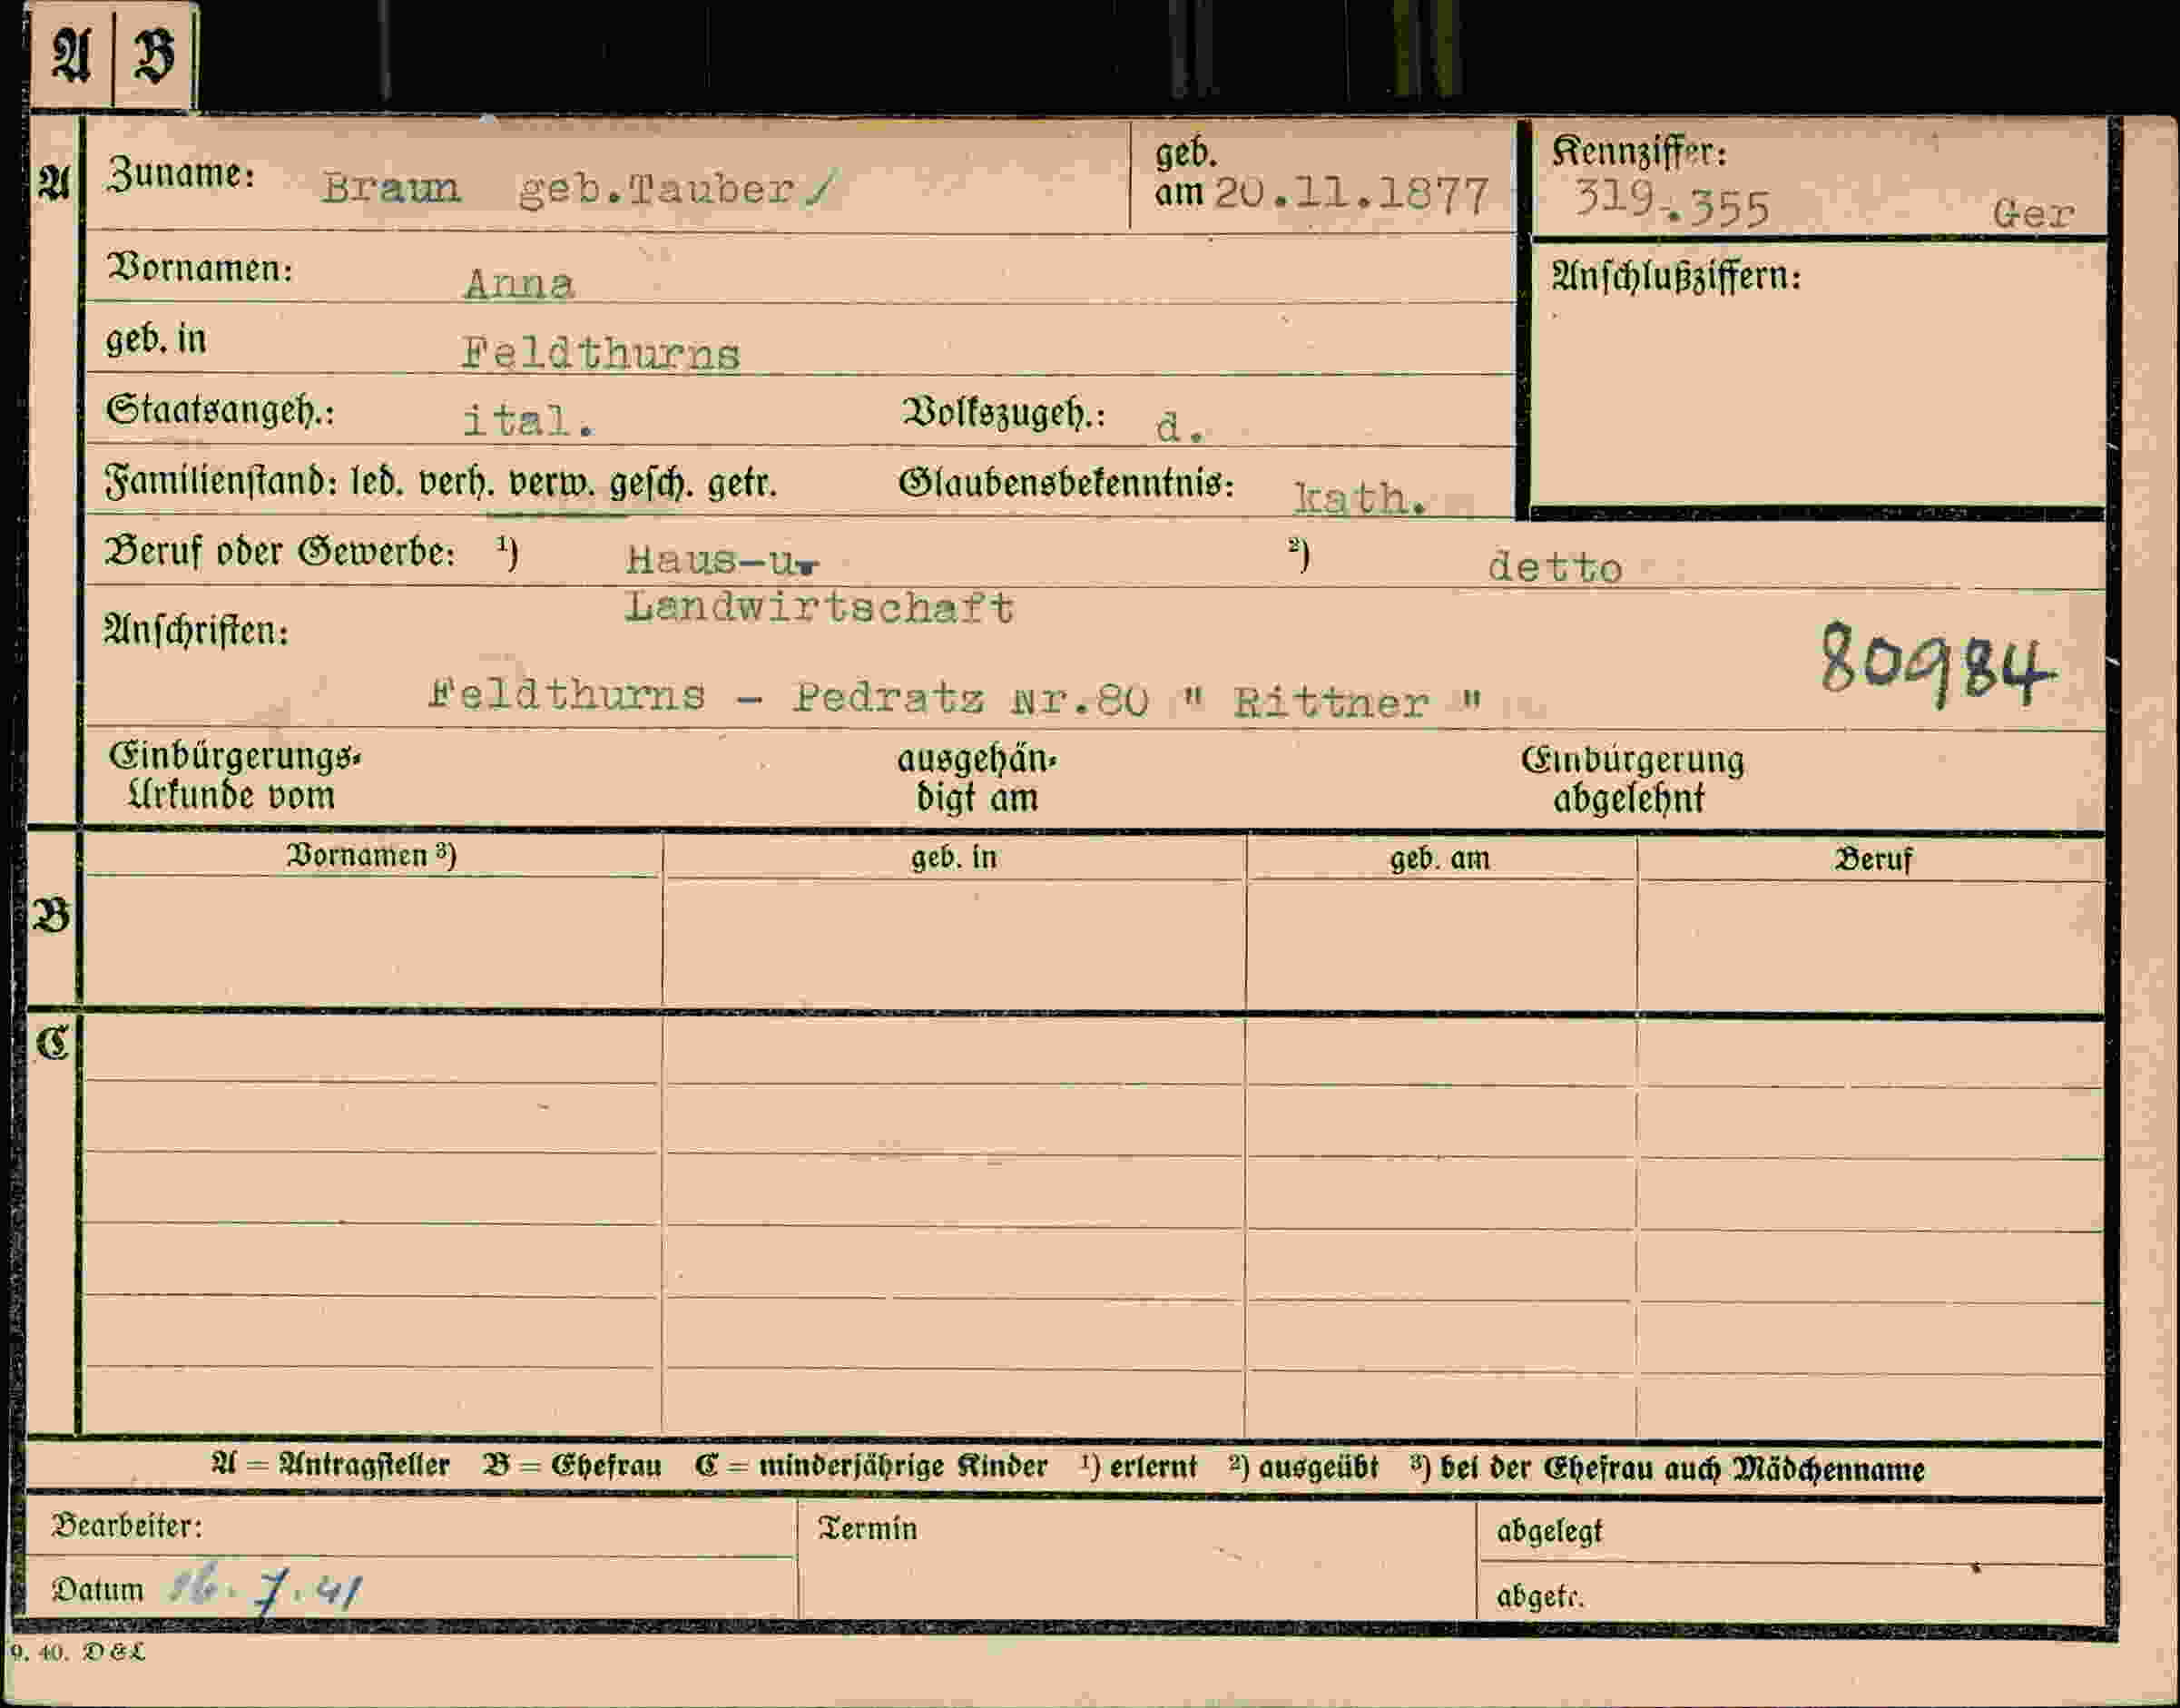 A B
A Zuname: Braun geb.Tauber/ geb. am 20.11.1877 Kennziffer: 319.355 Ger
Vornamen: Anna Anschlußziffern:
geb. in Feldthurns
Staatsangeh.: ital. Volkszugeh.: d.
Familienstand: led. verh. verw. gesch. getr. Glaubensbekenntnis: kath.
Beruf oder Gewerbe: ¹) Haus-u. ²) detto
Landwirtschaft
Anschriften: 80984
Feldthurns - Pedratz Nr.80 " Rittner "
Einbürgerungs- ausgehän- Einbürgerung
Urkunde vom digt am abgelehnt
Vornamen ³) geb. in geb. am Beruf
B
C
A = Antragsteller B = Ehefrau C = minderjährige Kinder ¹) erlernt ²) ausgeübt ³) bei der Ehefrau auch Mädchenname
Bearbeiter: Termin abgelegt
Datum 16.7.41 abgetr.
9. 40. D&L